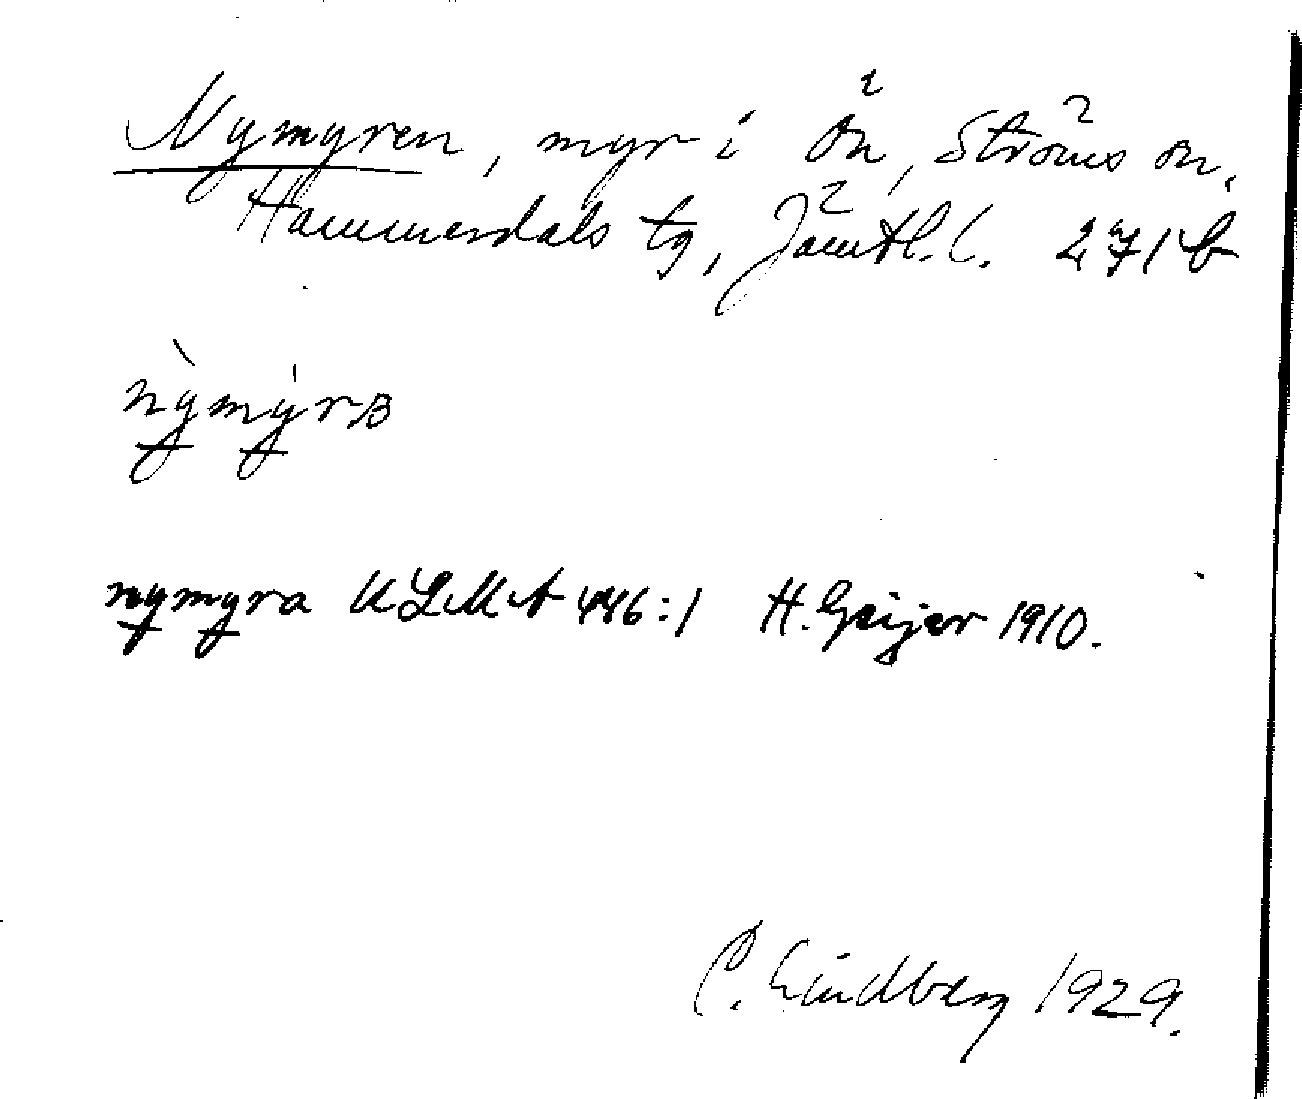 Nymyren, myr i Ön, Ströms sn,
Hammerdals tg, Jämtl. l. 271b
nỳmýrʙ
nymyra ULMA 446:1 H. Geijer 1910.
C. Lindberg 1929.